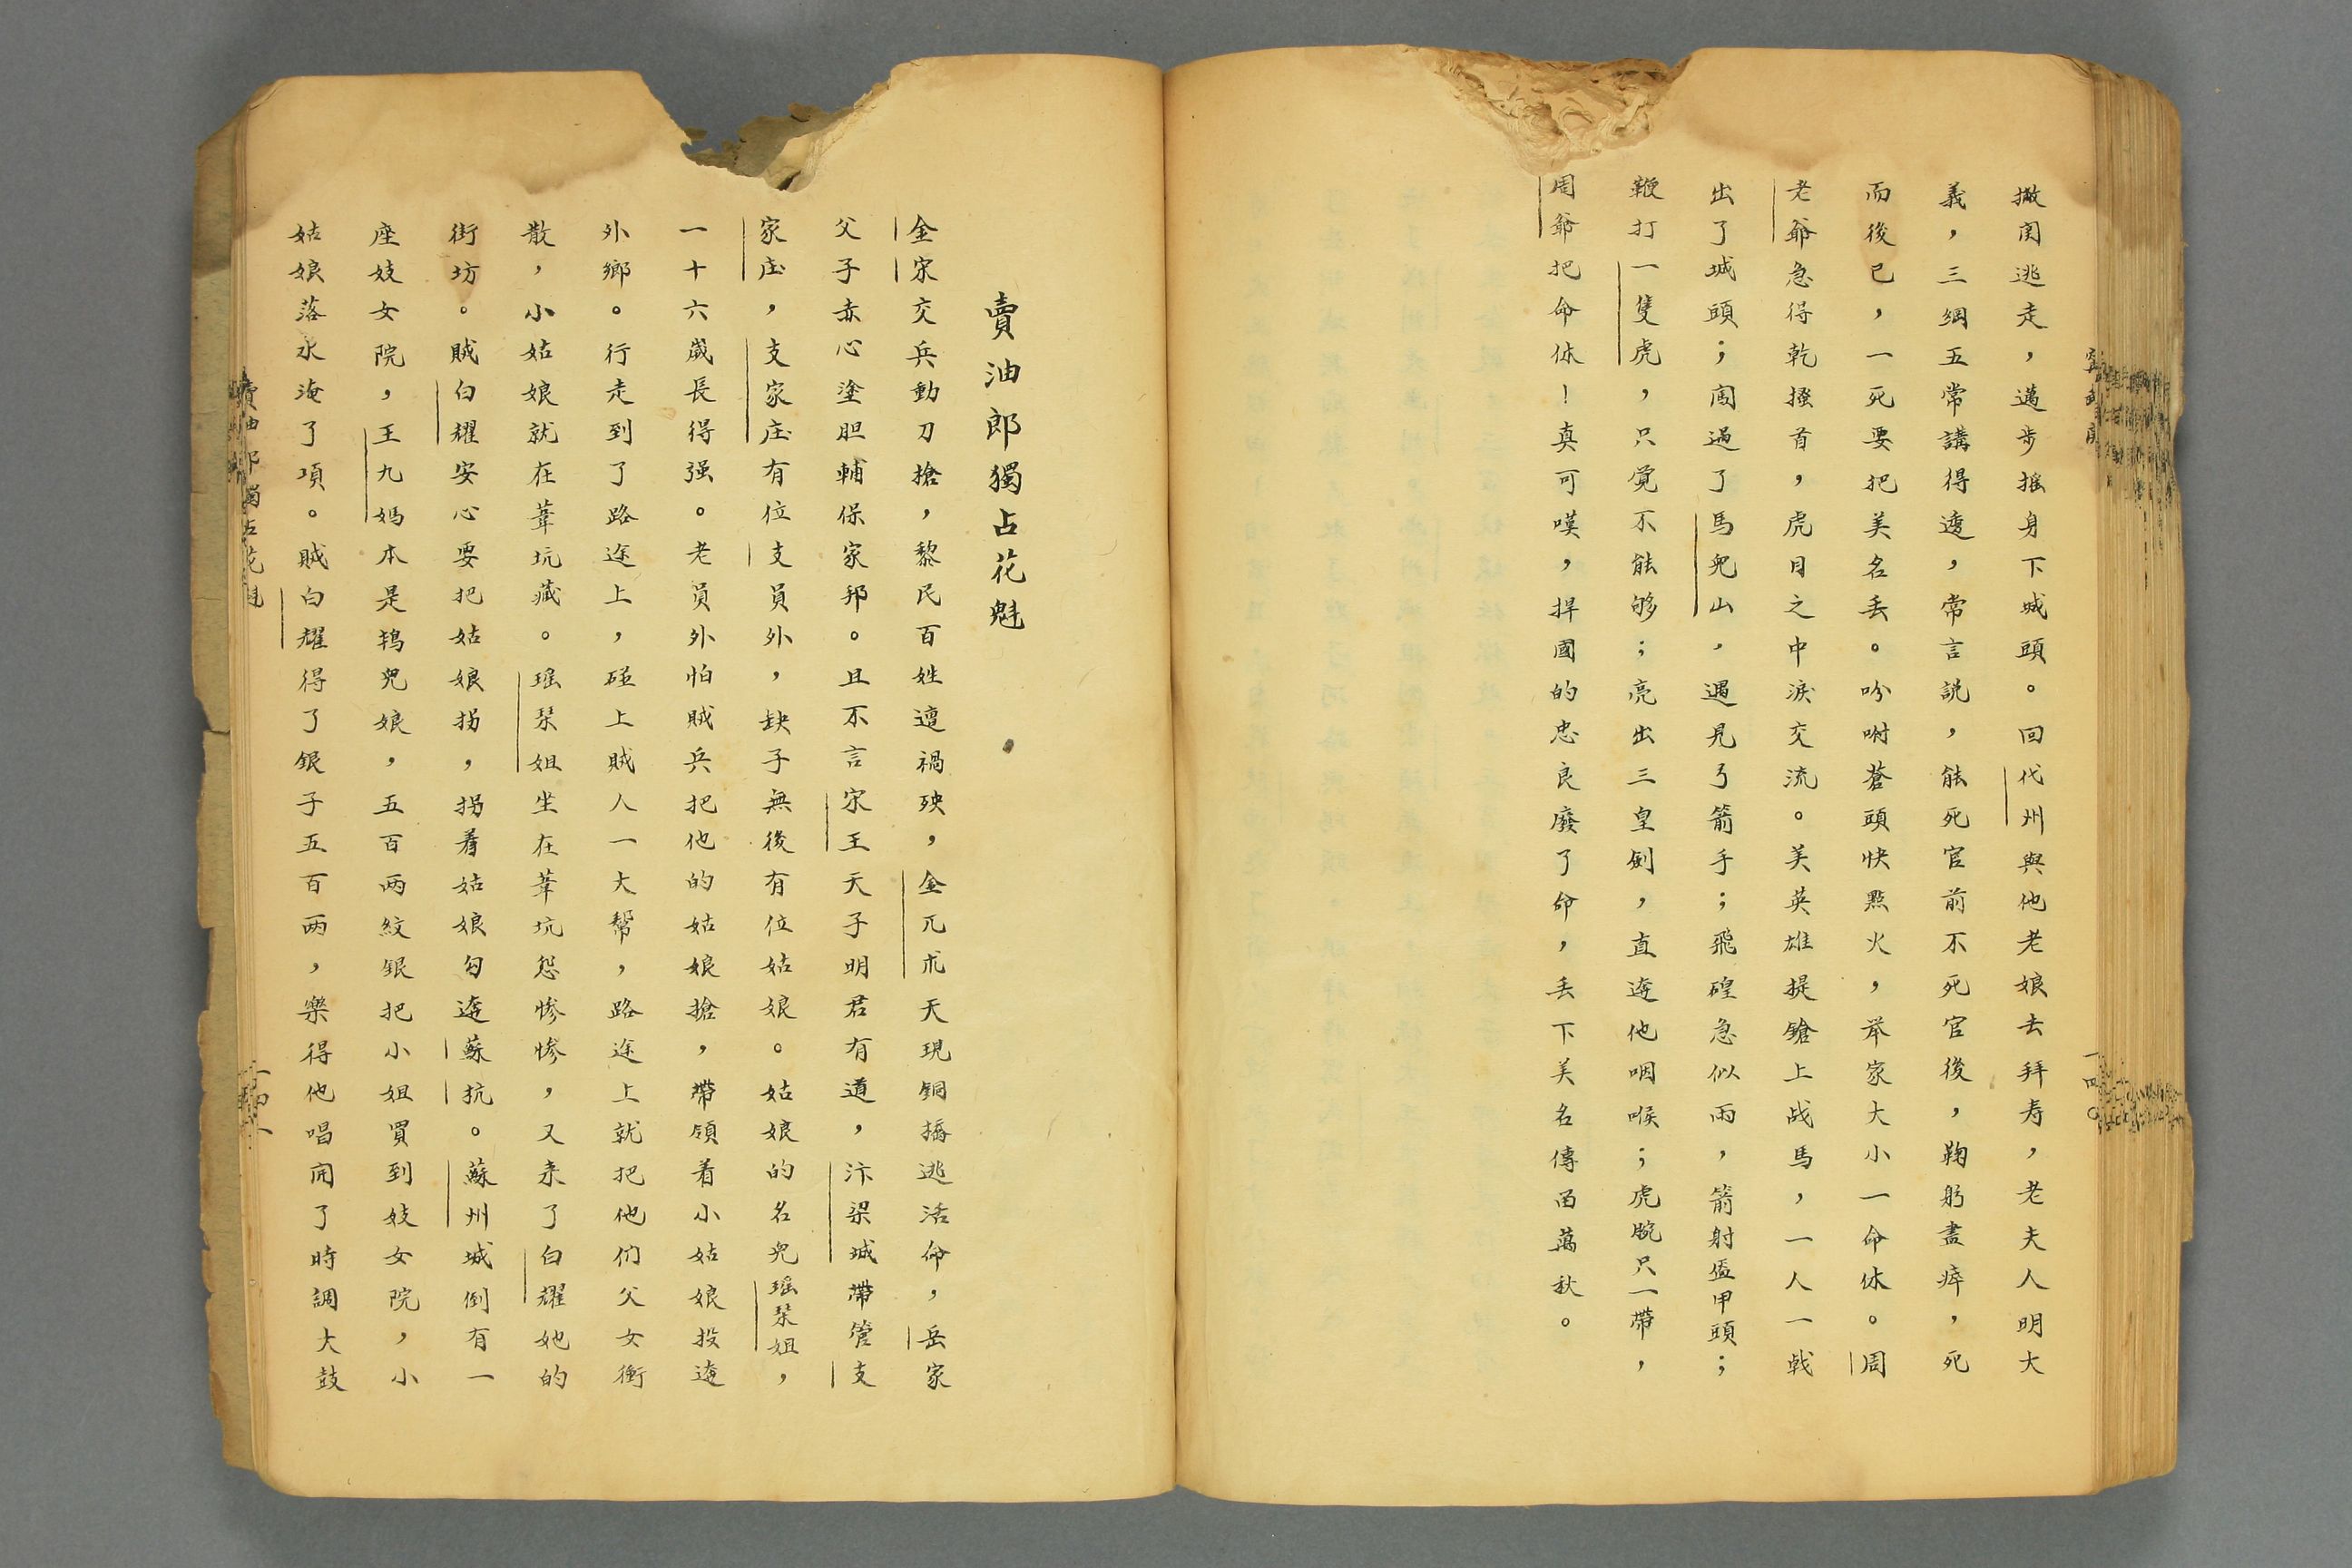 撇関逃走，邁步摇身下城頭。回代州與他老娘去拜寿，老夫人明大
義，三綱五常講得透，常言説，能死官前不死官後，鞠躬盡瘁，死
而後已，一死要把美名丢。吩咐蒼頭快點火，举家大小一命休。周
老爺急得乾搔首，虎目之中淚交流。美英雄提鎗上战馬，一人一戟
出了城頭；闯過了馬兒山，遇見弓箭手；飛碟急似雨，箭射盔甲頭；
鞭打一隻虎，只覚不能够；亮出三皇劍，直逩他咽喉；虎腕只一帶，
周爺把命休！真可嘆，捍國的忠良廢了命，丢下美名傳畄萬秋。
一四〇
賣油郎獨占花魁
金宋交兵動刀搶，黎民百姓遭禍殃，金兀朮天現銅橋逃活命，岳家
父子赤心塗胆輔保家邦。且不言宋王天子明君有道，汴梁城帶管支
家庄，支家庄有位支員外，缺子無後有位姑娘。姑娘的名兒瑶琹姐，
一十六歳長得强。老員外怕賊兵把他的姑娘搶，帶領着小姑娘投逩
外鄉。行走到了路途上，碰上賊人一大幫，路途上就把他们父女衝
散，小姑娘就在葦坑藏。瑶琹姐坐在葦坑怨惨惨，又来了白耀她的
街坊。賊白耀安心要把姑娘拐，拐着姑娘勾逩蘇抗。蘇州城倒有一
座妓女院，王九媽本是鸨兒娘，五百両紋銀把小姐買到妓女院，小
姑娘落水淹了項。賊白耀得了銀子五百両，樂得他唱開了時調大鼓
賣油郎獨占花魁